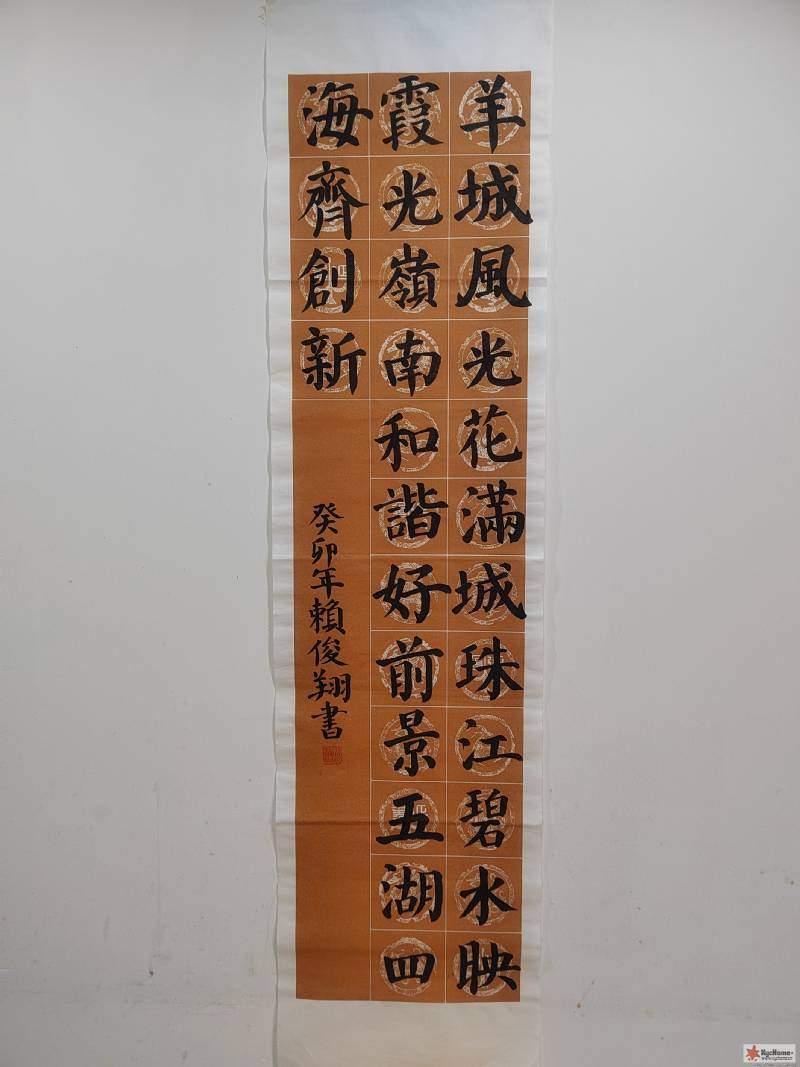 羊城風光花滿城珠江碧水映
霞光嶺南和諧好前景五湖四
海齊創新
癸卯年賴俊翔書